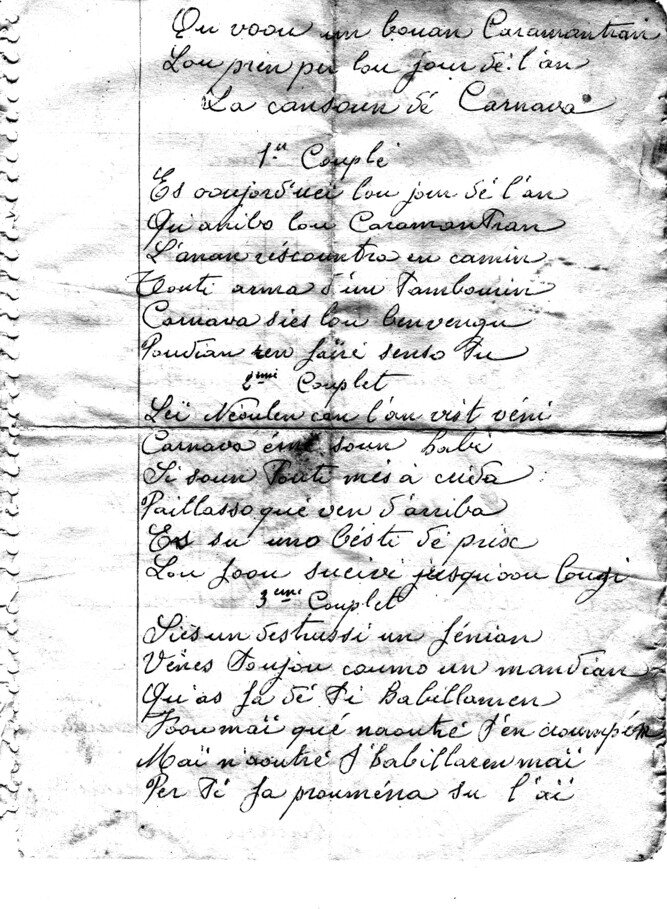 Qu voou un bouan Caramantran
Lou pren per lou jour dé l'an
La cansoun dé Carnava
1er Couplé
Es ooujord'uei lou jour dé l'an
Qu'aribo lou Caramantran
L'anan réscountra en camin
Touti arma d'un Tambourin
Carnava siès lou benvengu
Poudian ren faïré senso Tu
2ème Couplet
Leï Néoulen can l'an vist véni
Carnava émé soun babi
Si soun Touti més à crida
Paillasso qué ven d'arriba
Es su uno bésti dé prix
Lou foou sucivi jusqu'oou lougi
3ème Couplet
Siès un destrussi un fénian
Vénes Toujou coumo un mandian
Qu'as fa dé Ti Babillamen
Foou maï qué naoutré T'en
Maï n'aoutré T'babillaren maï
Per Ti fa prouména su l'aï